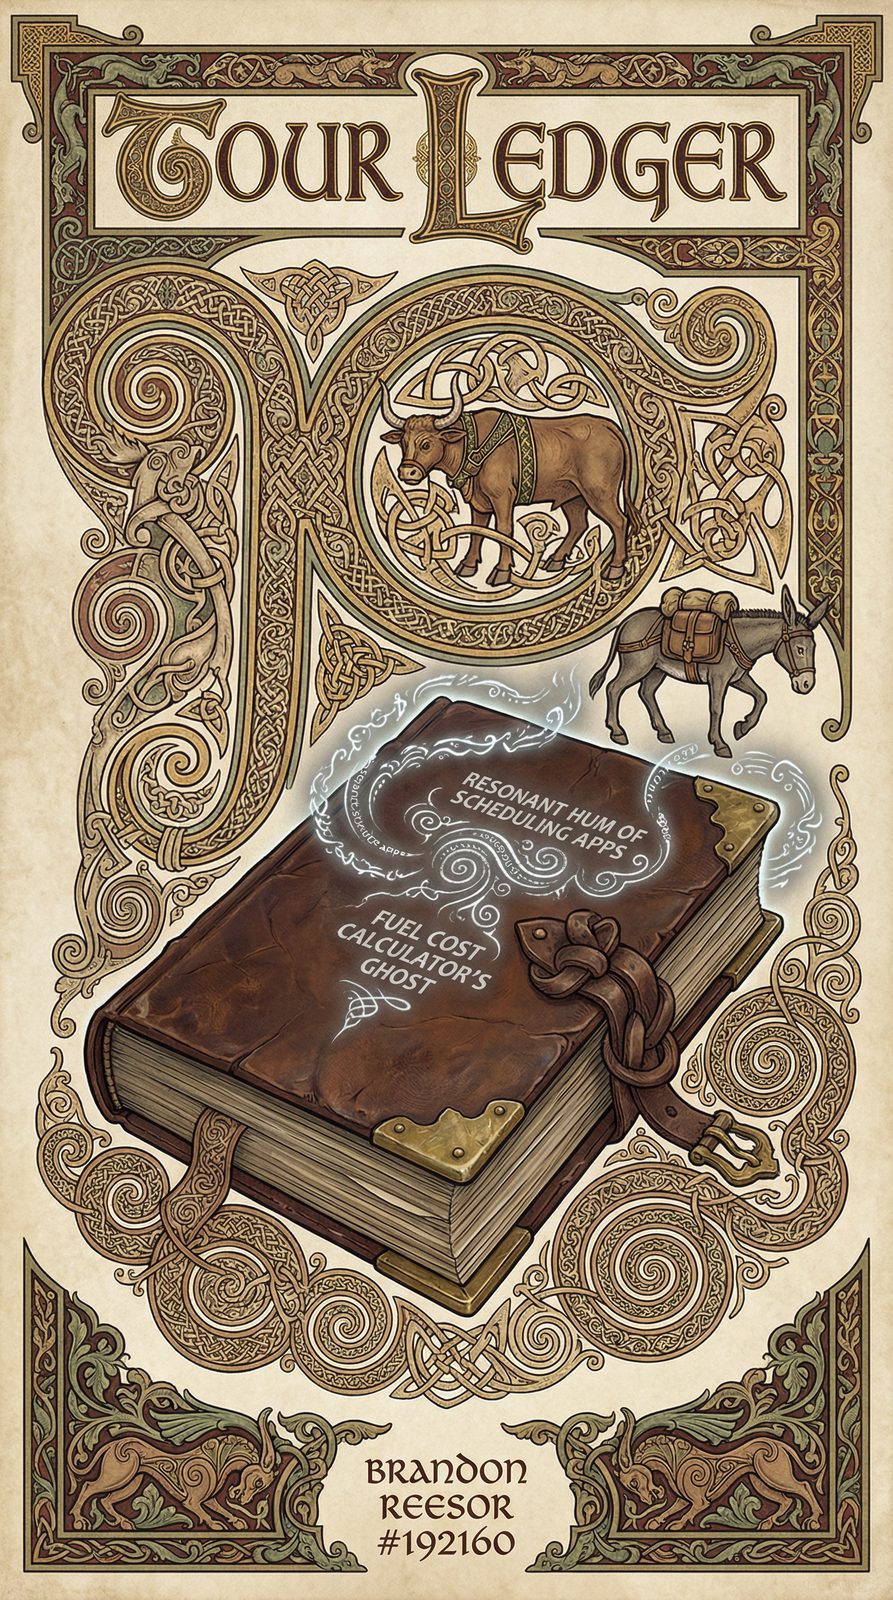 TOUR LEDGER
RESONANT HUM OF
SCHEDULING APPS
FUEL COST
CALCULATOR'S
GHOST
BRANDON
REESOR
#192160